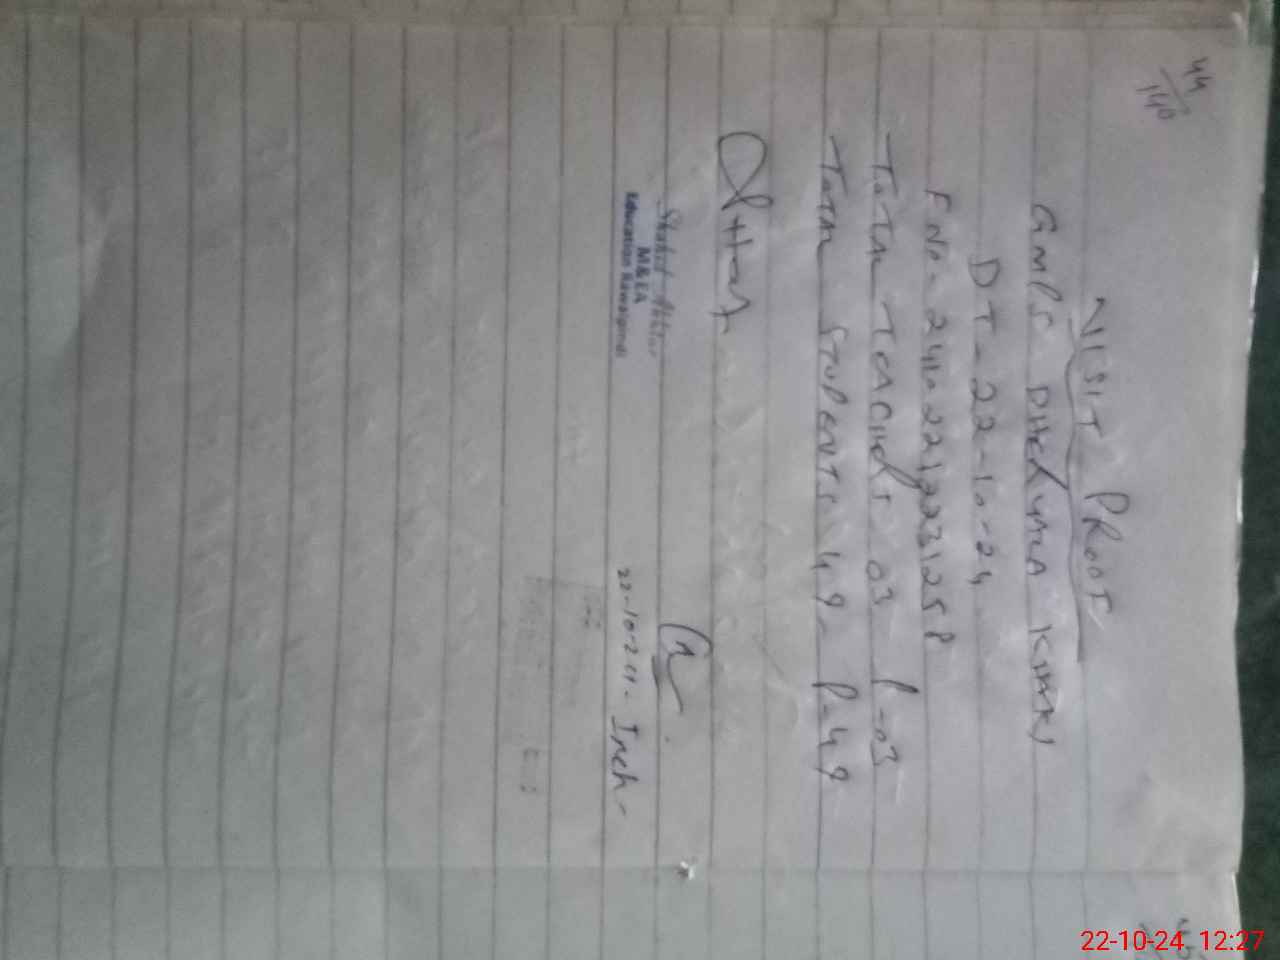 44
140
VISIT PROOF
GMPS DHERYMLA KHAKI
DT-22-10-24
FNo-24102212231258
TOTAL TEACHERS 03 P-03
TOTAL STUDENTS 49- P-49
Shahid Akhtar
M&EA
Education Rawalpindi
22-10-24-
22-10-24. 12:27